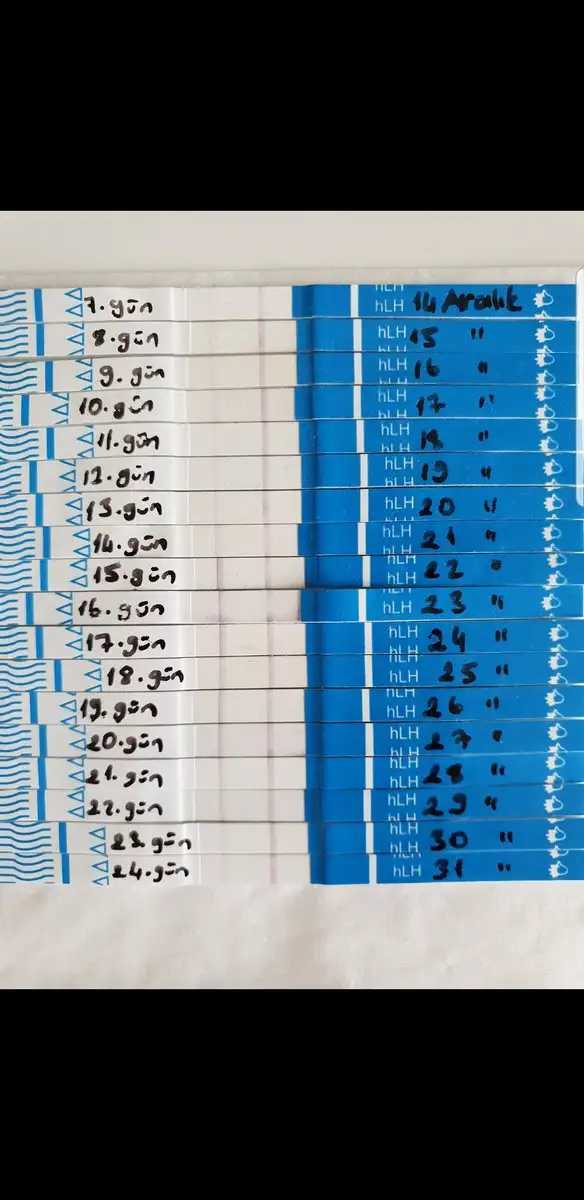 7. gün hLH 14 Aralık
8. gün hLH 15 "
9. gün hLH 16 "
10. gün hLH 17 "
11. gün hLH 18 "
12. gün hLH 19 "
13. gün hLH 20 "
14. gün hLH 21 "
15. gün hLH 22 "
16. gün hLH 23 "
17. gün hLH 24 "
18. gün hLH 25 "
19. gün hLH 26 "
20. gün hLH 27 "
21. gün hLH 28 "
22. gün hLH 29 "
23. gün hLH 30 "
24. gün hLH 31 "